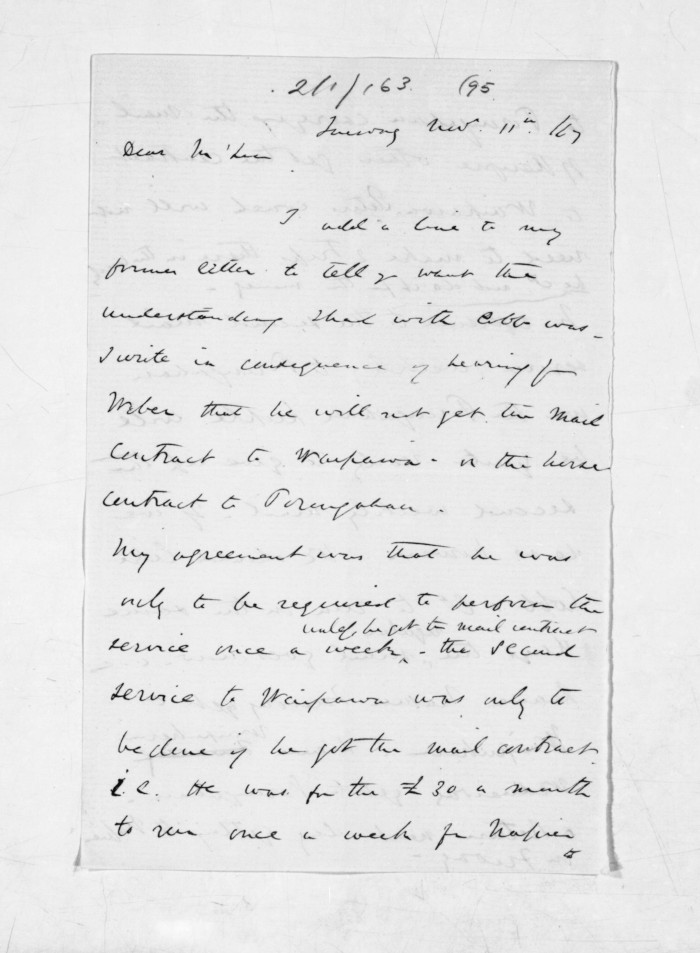 2/1/163. (95
Nov. 11th 67
Dear McLean
I add a line to my
former letter to tell yo what the
understanding I had with Cobb was -
I write in consequence of hearing fm
Weber that he will not get the Mail
Contract to Waipawa - or the horse
contract to Porangahau.
My agreement was that he was
only to be required to perform the
unless he got the mail contract
service once a week, - the second
service to Waipawa was only to
be done if he got the mail contract.
i.e. He was for the £30 a month
to run once a week fm Napier
to